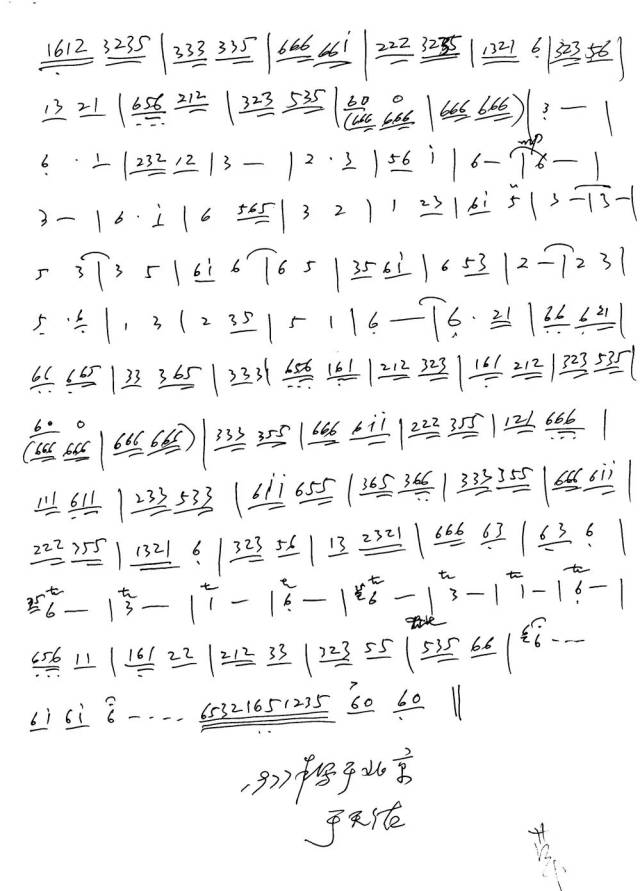 1612 3235 | 333 335 | 666 66i | 222 3235 | 1321 6 | 323 56 |
13 21 | 656 212 | 323 535 | 60 0 (666 666 | 666 666) | 3 — |
6 · 1 | 232 12 | 3 — | 2 · 3 | 56 i | 6 — | mp 6 — |
3 — | 6 · i | 6 565 | 3 2 | 1 23 | 6i 5 | 3 — | 3 — |
5 3 | 3 5 | 6i 6 | 6 5 | 35 6i | 6 53 | 2 — | 2 3 |
5 · 6 | 1 3 | 2 35 | 5 1 | 6 — | 6 · 21 | 66 621 |
66 665 | 33 365 | 333 | 656 161 | 212 323 | 161 212 | 323 535 |
60 0 (666 666 | 666 666) | 333 355 | 666 6ii | 222 355 | 121 666 |
111 611 | 233 533 | 6ii 655 | 365 366 | 333 355 | 666 6ii |
222 355 | 1321 6 | 323 56 | 13 2321 | 666 63 | 63 6 |
6 — | tr 3 — | tr 1 — | tr 6 — | tr 6 — | tr 3 — | tr 1 — | tr 6 — |
656 11 | 161 22 | 212 33 | 323 55 | 535 66 | 6 ----
6i 6i 6 ---- 65321651235 60 60 ‖
1977年 于北京